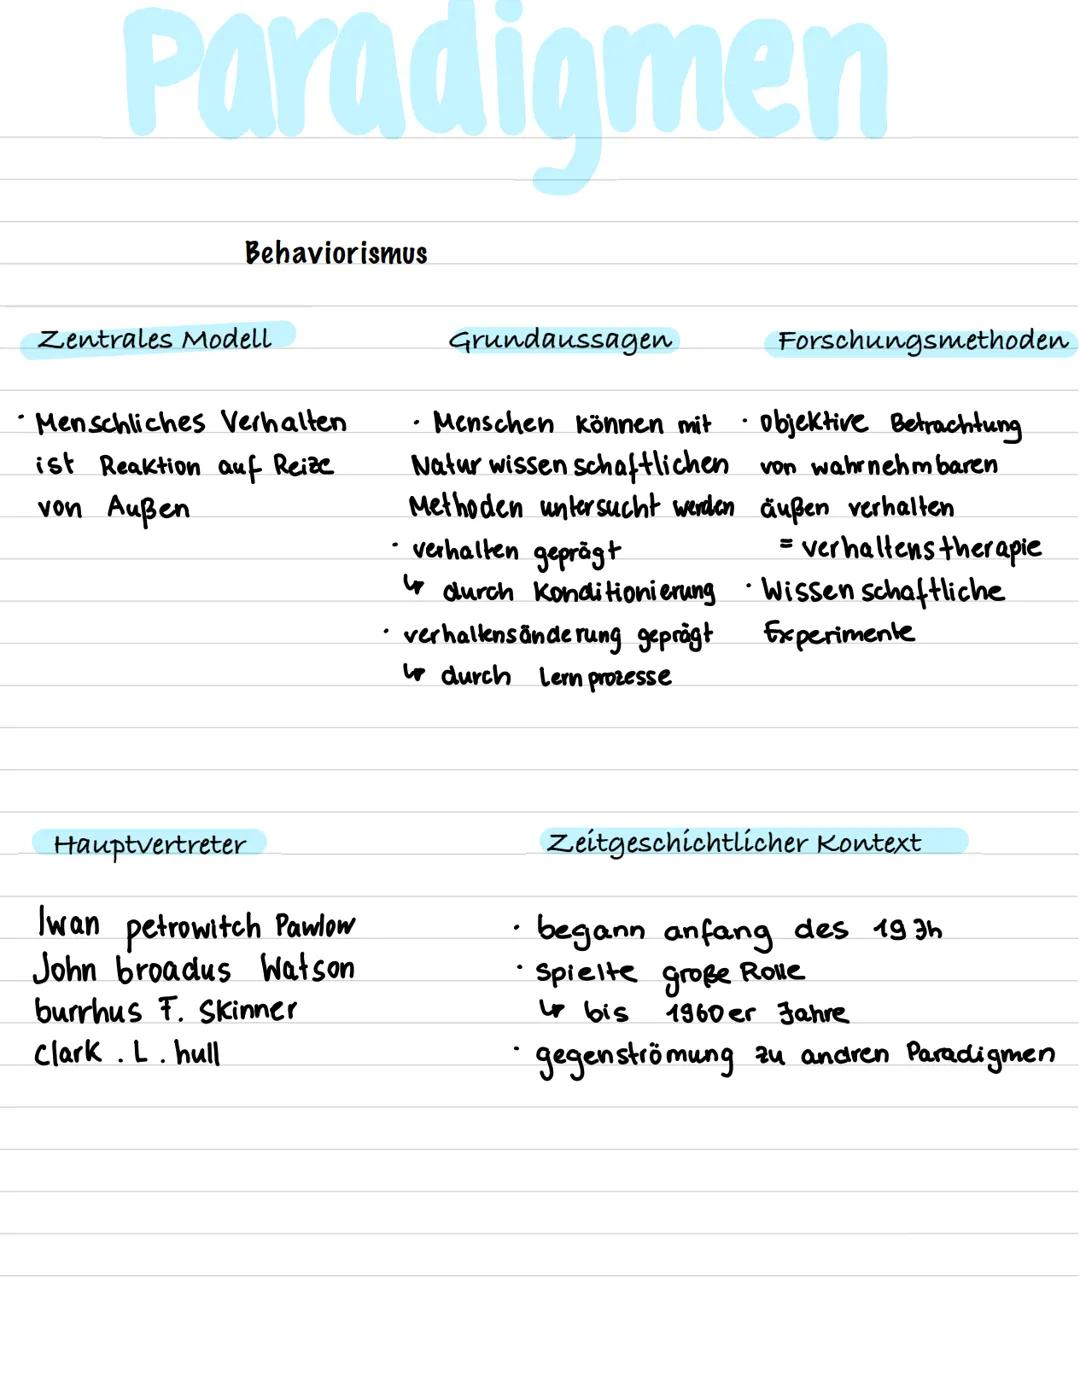 Paradigmen
Behaviorismus
Zentrales Modell
· Menschliches Verhalten
ist Reaktion auf Reize
von Außen
Grundaussagen
· Menschen können mit
Naturwissenschaftlichen
Methoden untersucht werden
· verhalten geprägt
↳ durch Konditionierung
· verhaltensänderung geprägt
↳ durch Lernprozesse
Forschungsmethoden
· objektive Betrachtung
von wahrnehmbaren
äußen verhalten
= verhaltenstherapie
· Wissenschaftliche
Experimente
Hauptvertreter
Iwan petrowitch Pawlow
John broadus Watson
burrhus F. Skinner
Clark . L . hull
Zeitgeschichtlicher Kontext
· begann anfang des 19 Jh
· Spielte große Rolle
↳ bis 1960er Jahre
· gegenströmung zu andren Paradigmen